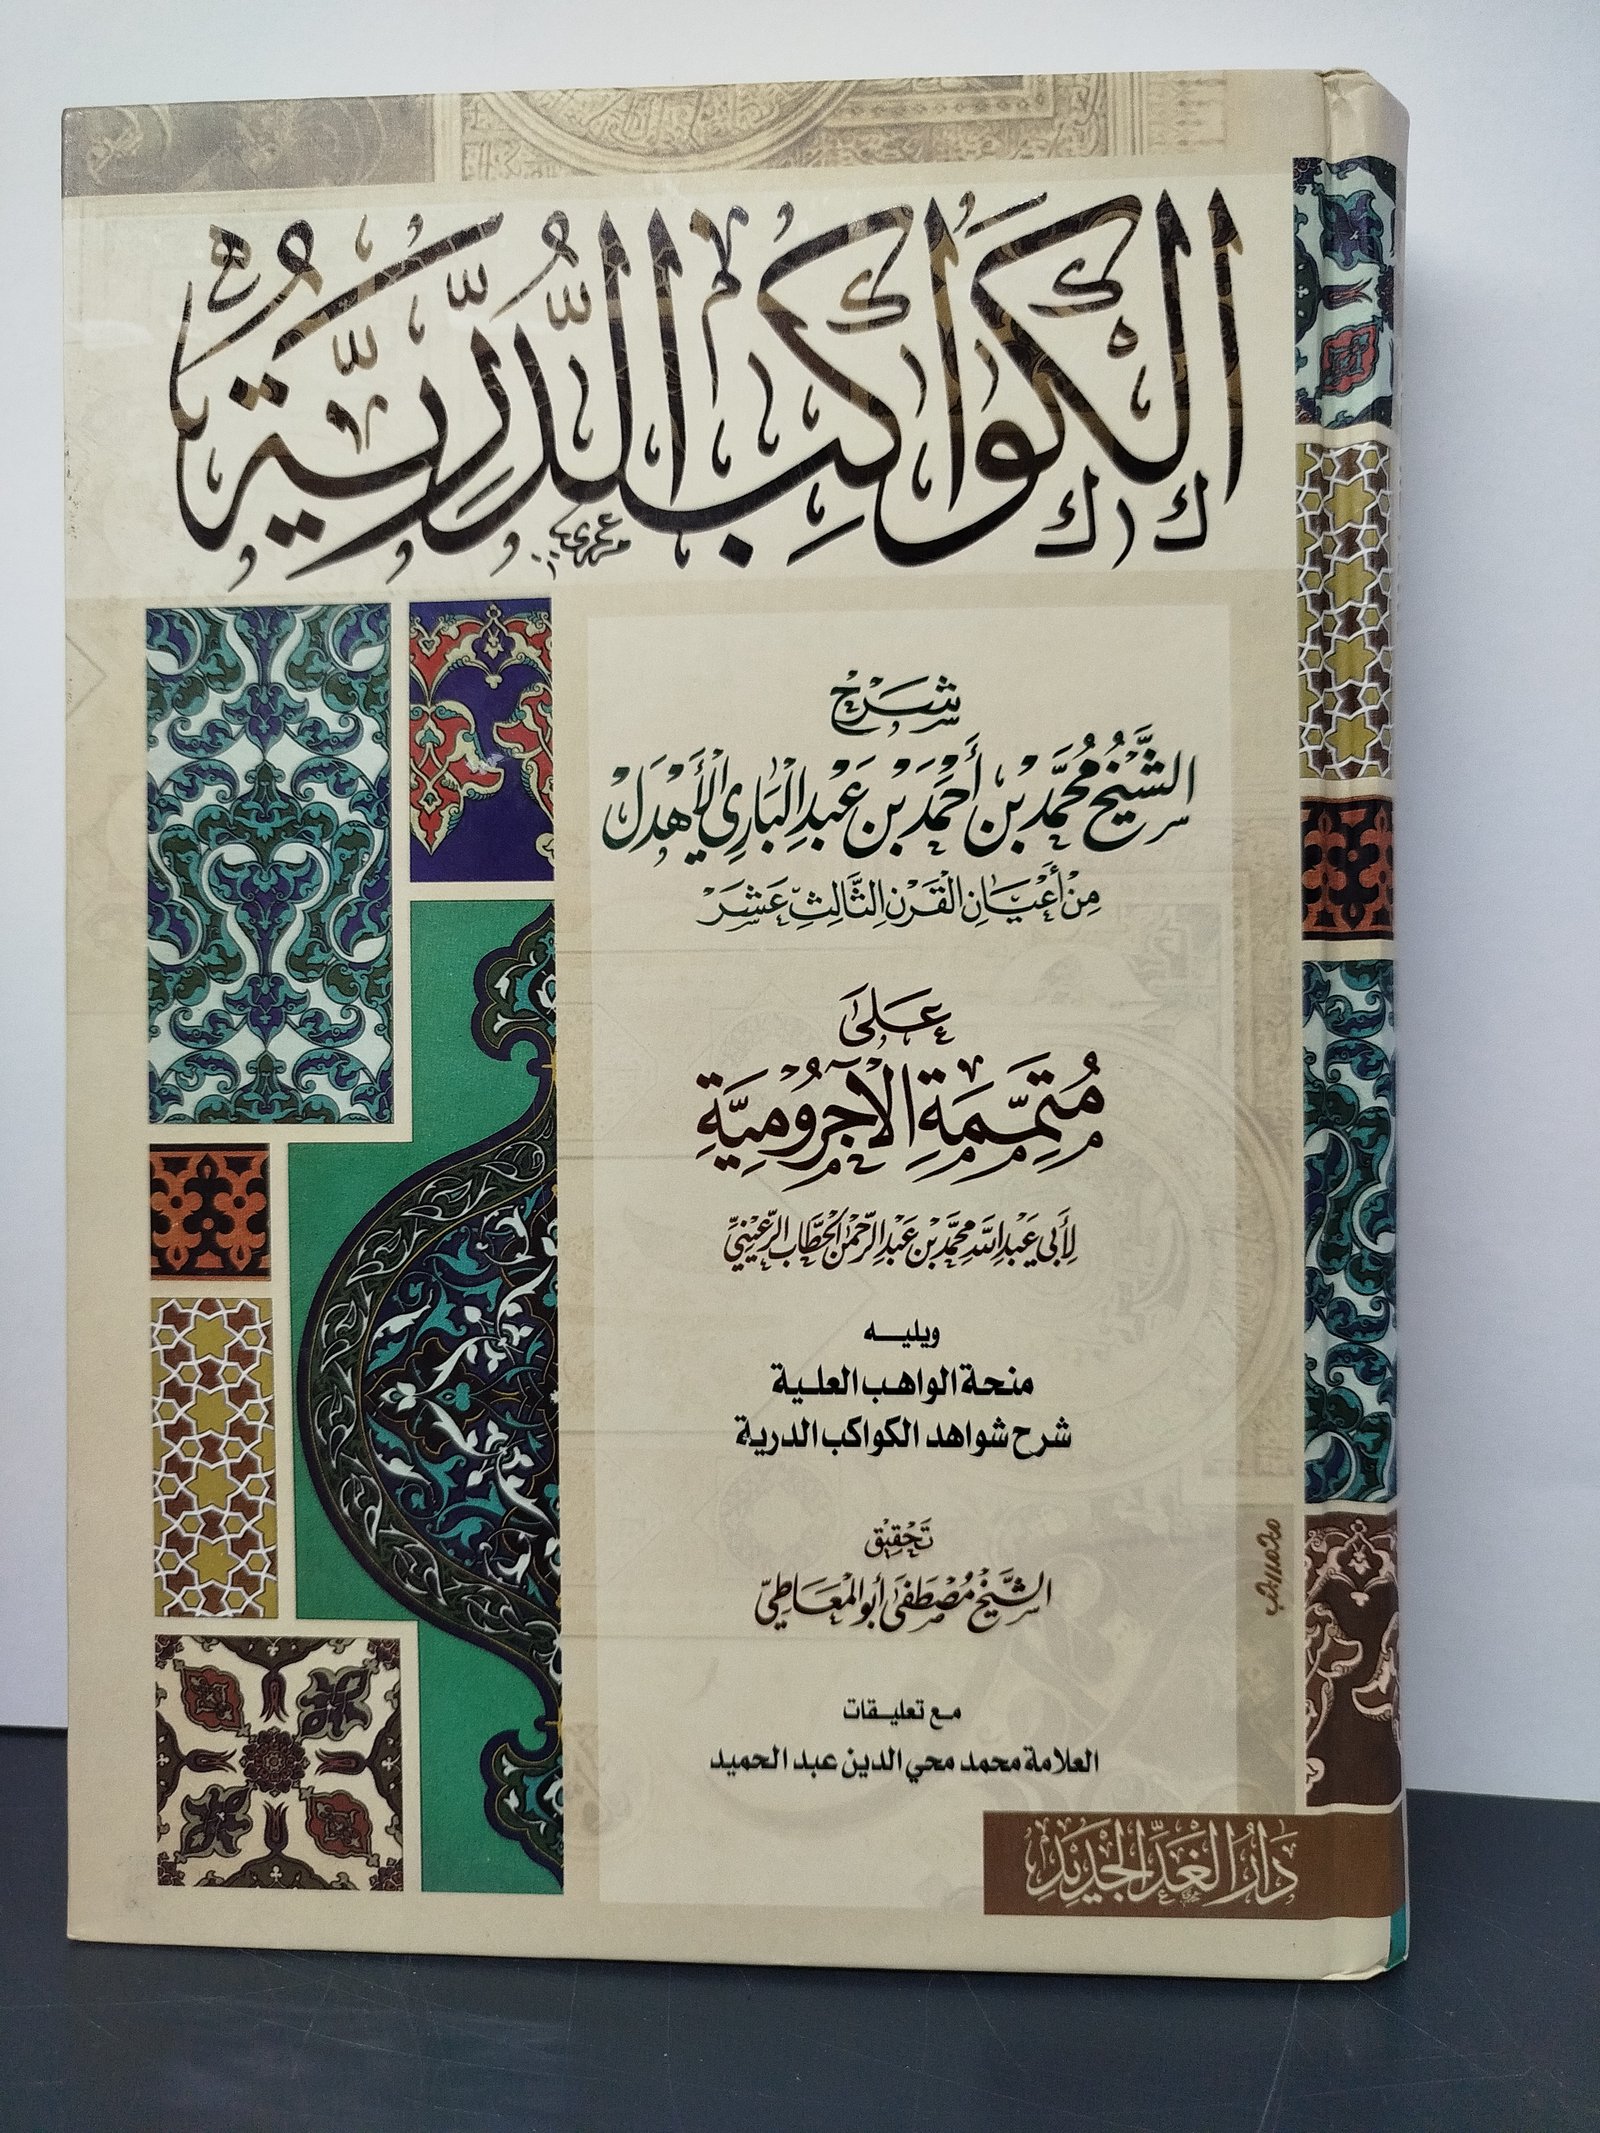 الكَوَاكِبُ الدُّرِّيَّةُ
شَرْحُ
الشَّيْخِ مُحَمَّدِ بْنِ أَحْمَدَ بْنِ عَبْدِ الْبَارِي الْأَهْدَلِ
مِنْ أَعْيَانِ القَرْنِ الثَّالِثِ عَشَرَ
عَلَى
مُتَمِّمَةِ الْآجُرُومِيَّةِ
لِأَبِي عَبْدِ اللَّهِ مُحَمَّدِ بْنِ عَبْدِ الرَّحْمَنِ الحَطَّابِ الرُّعَيْنِيِّ
ويليه
منحة الواهب العلية
شرح شواهد الكواكب الدرية
تَحْقِيق
الشَّيْخِ مُصْطَفَى أَبُو المَعَاطِي
مع تعليقات
العلامة محمد محي الدين عبد الحميد
دَارُ الْغَدِ الْجَدِيدِ